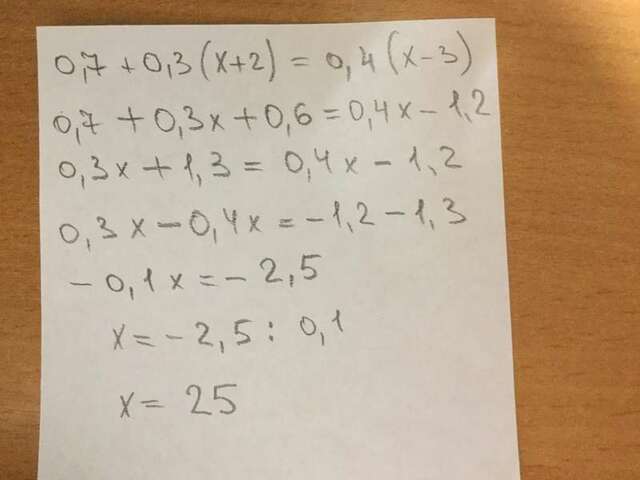 0,7 + 0,3(x+2) = 0,4(x-3)
0,7 + 0,3x + 0,6 = 0,4x - 1,2
0,3x + 1,3 = 0,4x - 1,2
0,3x - 0,4x = -1,2 - 1,3
- 0,1x = - 2,5
x = - 2,5 : 0,1
x = 25